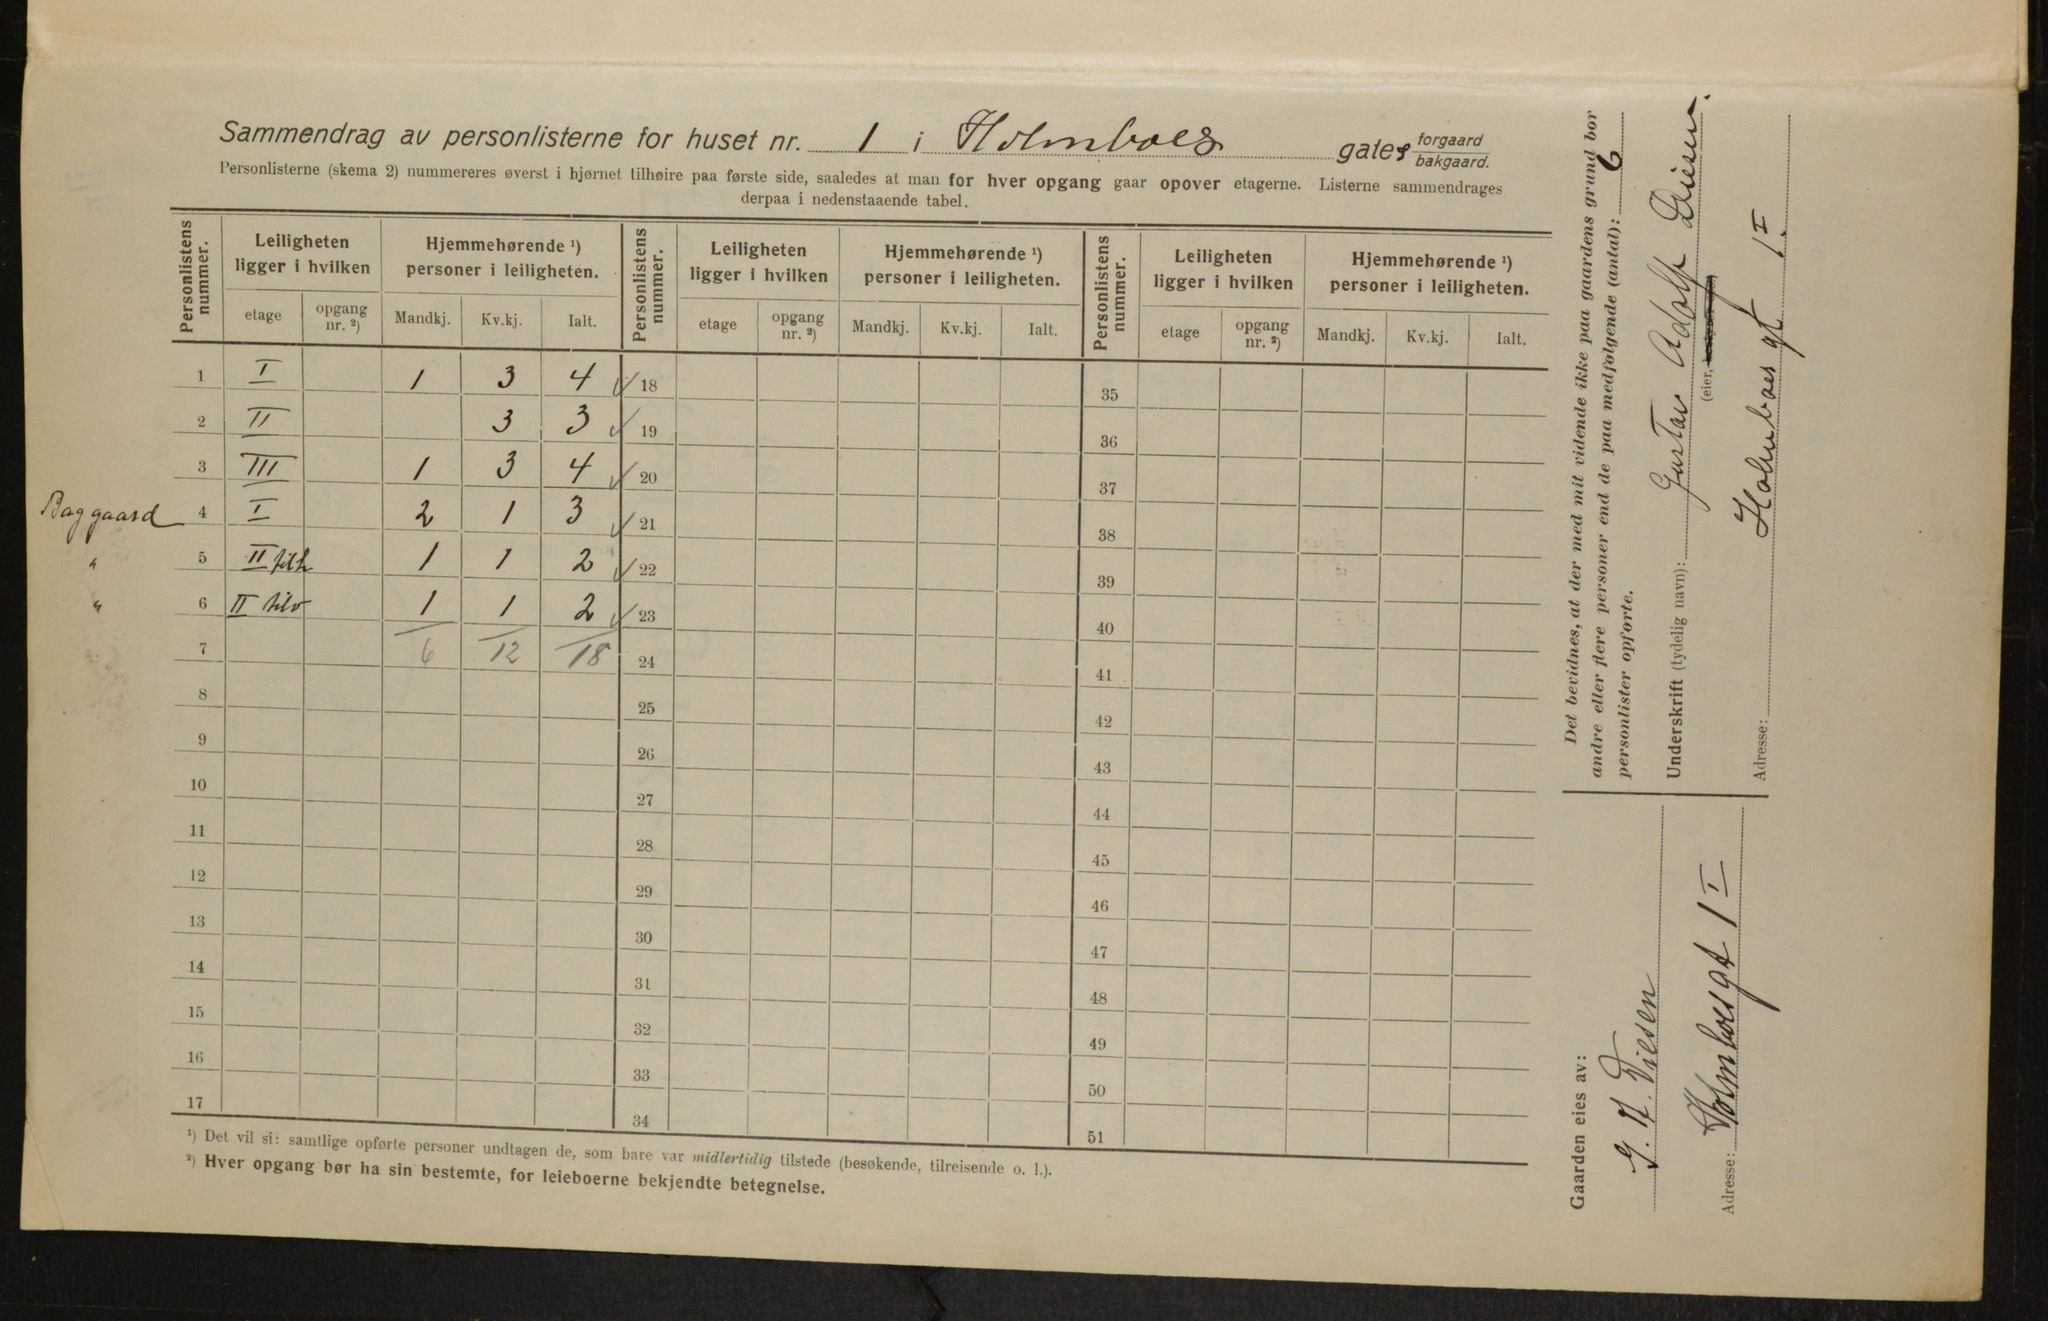 Sammendrag av personlisterne for huset nr. 1 i Holmboes gate forgaard bakgaard.
Personlisterne (skema 2) nummereres øverst i hjørnet tilhøire paa første side, saaledes at man for hver opgang gaar opover etagerne. Listerne sammendrages
derpaa i nedenstaaende tabel.
Personlistens nummer. Leiligheten ligger i hvilken Hjemmehørende ¹) personer i leiligheten. Personlistens nummer. Leiligheten ligger i hvilken Hjemmehørende ¹) personer i leiligheten. Personlistens nummer. Leiligheten ligger i hvilken Hjemmehørende ¹) personer i leiligheten.
etage opgang nr. ²) Mandkj. Kv.kj. Ialt. etage opgang nr. ²) Mandkj. Kv.kj. Ialt. etage opgang nr. ²) Mandkj. Kv.kj. Ialt.
1 I 1 3 4 ✓ 18 35
2 II 3 3 ✓ 19 36
3 III 1 3 4 ✓ 20 37
Baggaard 4 I 2 1 3 ✓ 21 38
" 5 II tilh 1 1 2 ✓ 22 39
" 6 II tilv 1 1 2 ✓ 23 40
7 6 12 18 24 41
8 25 42
9 26 43
10 27 44
11 28 45
12 29 46
13 30 47
14 31 48
15 32 49
16 33 50
17 34 51
¹) Det vil si: samtlige opførte personer undtagen de, som bare var midlertidig tilstede (besøkende, tilreisende o. l.).
²) Hver opgang bør ha sin bestemte, for leieboerne bekjendte betegnelse.
Det bevidnes, at der med mit vidende ikke paa gaardens grund bor
andre eller flere personer end de paa medfølgende (antal): 6
personlister opførte.
Underskrift (tydelig navn): Gustav Adolf
(eier,
Adresse: Holmboes gt 1 I.
Gaarden eies av:
Adresse: Holmboesgt 1 I